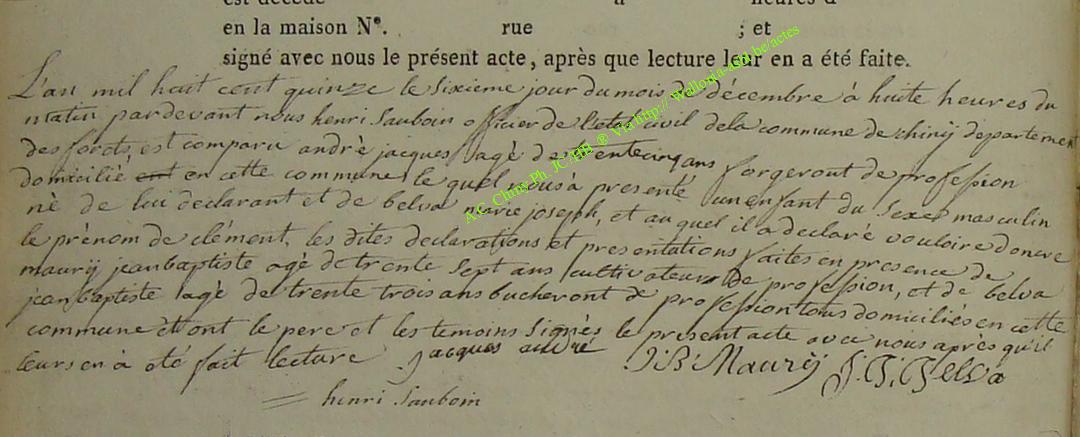 est décédé à heures d
en la maison N°. rue ; et
signé avec nous le présent acte, après que lecture leur en a été faite.
L'an mil huit cent quinze le sixieme jour du mois de décembre à huite heures du
matin pardevant nous henri Sauboin officier de l'etat civil dela commune de chinÿ departement
des forets, est comparu andrè jacques agè de trentecinq ans forgeront de profession
domicilié ent en cette commune le quel nous à presentè un enfant du sexe masculin
nè de lui declarant et de belva marie joseph, et au quel il a declaré vouloire donere
le prènom de clément, les dites declarations et presentations faites en presence de
maurÿ jeanbaptiste agè de trente sept ans cultivateur de profession, et de belva
jeanbaptiste agè de trente trois ans bucheront de profession tous domiciliés en cette
commune et ont le pere et les temoins signès le present acte avec nous après qu'il
leurs en à été fait lecture. jacques andré J: B: Maurÿ J. B. Belva
henri Sauboin
A.C. Chiny-Ph. JC HB ® Via http:// Wallonia-asd.be/actes